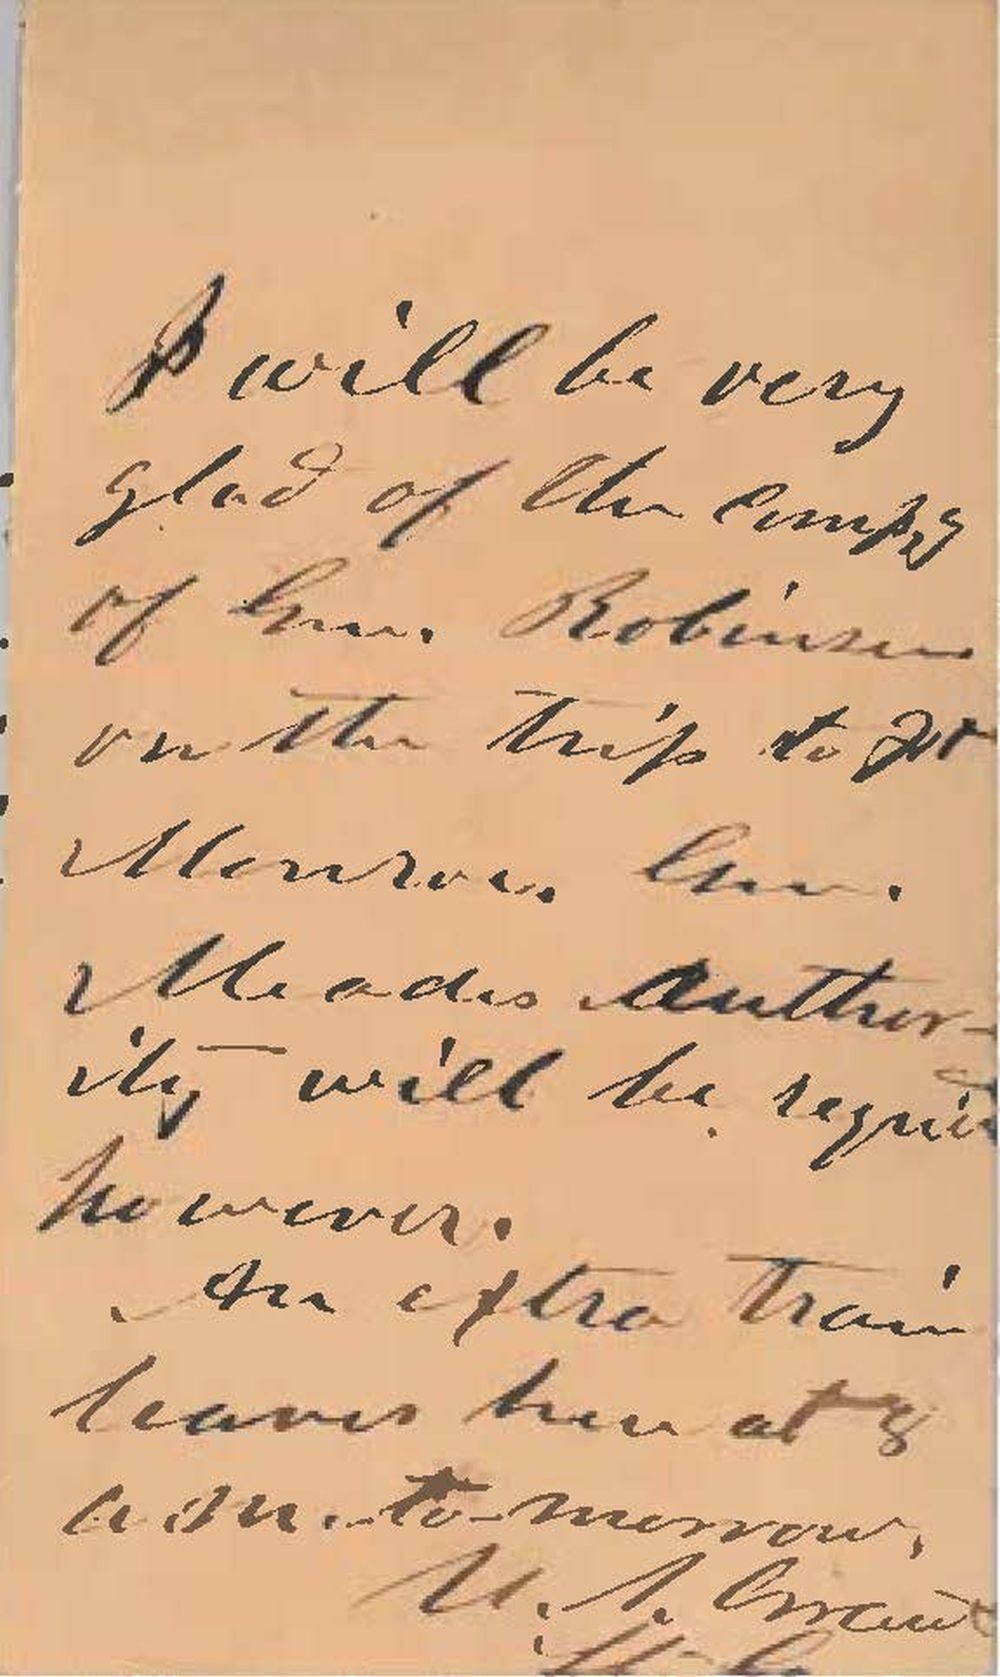 I will be very
glad of the compy
of Gen. Robinson
on the trip to Ft
Monroe. Gen.
Meades author-
ity will be requir
however.
An extra train
leaves here at 8
a.m. to-morrow.
U. S. Grant